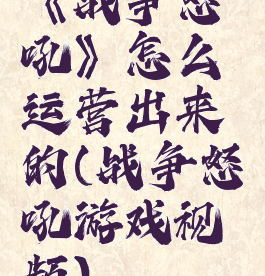 《战争怒
吼》怎么
运营出来
的(战争怒
吼游戏视
频)